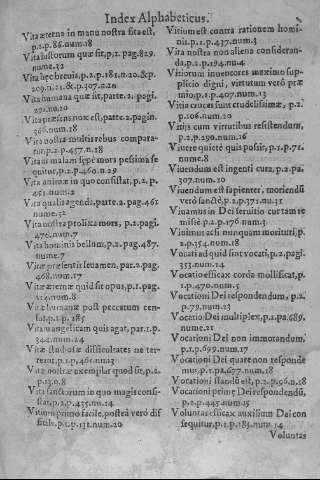 Index Alphabeticus.
Vita æterna in manu nostra sita est,
p.2.p.86.num.18
Vita iustorum quæ sit, p.1.pag.829.
nume.32
Vita hęc breuis, p.2.p.181.n.20.&p.
209.n.21.&p.307.n.20
Vita humana quæ sit, parte.2.pagi.
292.nu.20
Vita præsens nox est, parte.2.pagin.
366.num.18
Vita nostra multis rebus compara-
tur, p.2.p.457.n.18
Vitam malam sępe mors pessima se
quitur, p.2.p.460.n.29
Vita animæ in quo consistat, p.2.p.
461.num.2
Vita qualis agendi, parte.2.pag.461
nume.32
Vita nostra prolixa mors, p.2.pagi.
476.num.7
Vita hominis bellum, p.2.pag.487.
nume.7
Vitæ præsentis leuamen, par.2.pag.
468.num.17
Vitæ æternæ quid sit opus, p.1.pag.
214.num.8
Vitæ humanæ post peccatum cen-
sus, p.1.p.285
Vita angelicam quis agat, par.1.p.
344.num.24
Vitæ studiosæ difficultates ne ter-
reant, p.1.p.461.nu.13
Vitæ nostræ exemplar quod sit, p.2.
p.13.n.8
Vita sanctorum in quo magis consi-
stat, p.2.p.435.nu.14
Vitium primo facile, posteà verò dif
ficile, p.1.p.131.num.20
Vitium est contra rationem homi-
nis, p.1.p.437.num.3
Vita nostra non aliena consideran-
da, p.2.p.194.nu.4
Vitiorum inuentores maximo sup-
plicio digni, virtutum verò præ
mio, p.1.p.407.num.13
Vitia cruces sunt crudelissimæ, p.2.
p.106.num.20
Vitijs cum virtutibus resistendum,
p.2.p.290.num.16
Viuere quietè quis possit, p.1.p.71.
nume.8
Viuendum est ingenti cura, p.2.pa.
307.num.10
Viuendum est sapienter, moriendū
verò sanctè, p.2.p.371.nu.31
Viuamus in Dei seruitio cur tam re
missè p.2.p.176.num.3
Viuimus acsi nunquam morituri, p.
2.p.354.num.18
Vocati ad quid sint vocati, p.2.pagi.
353.num.14
Vocatio efficax corda mollificat, p.
1.p.470.num.5
Vocationi Dei respondendum, p.2.
p.79.num.23
Vocatio Dei multiplex, p.1.pa.689.
nume.21
Vocationi Dei non immorandum,
p.1.p.699.num.17
Vocationi Dei quare non responde
mur, p.1.pa.677.num.18
Vocationi standū est, p.2.p.96.n.18
Vocationi primę Dei respondendū,
p.2.p.445.num.15
Voluntas efficax auxilium Dei con
sequitur, p.1.p.185.num.14
Voluntas